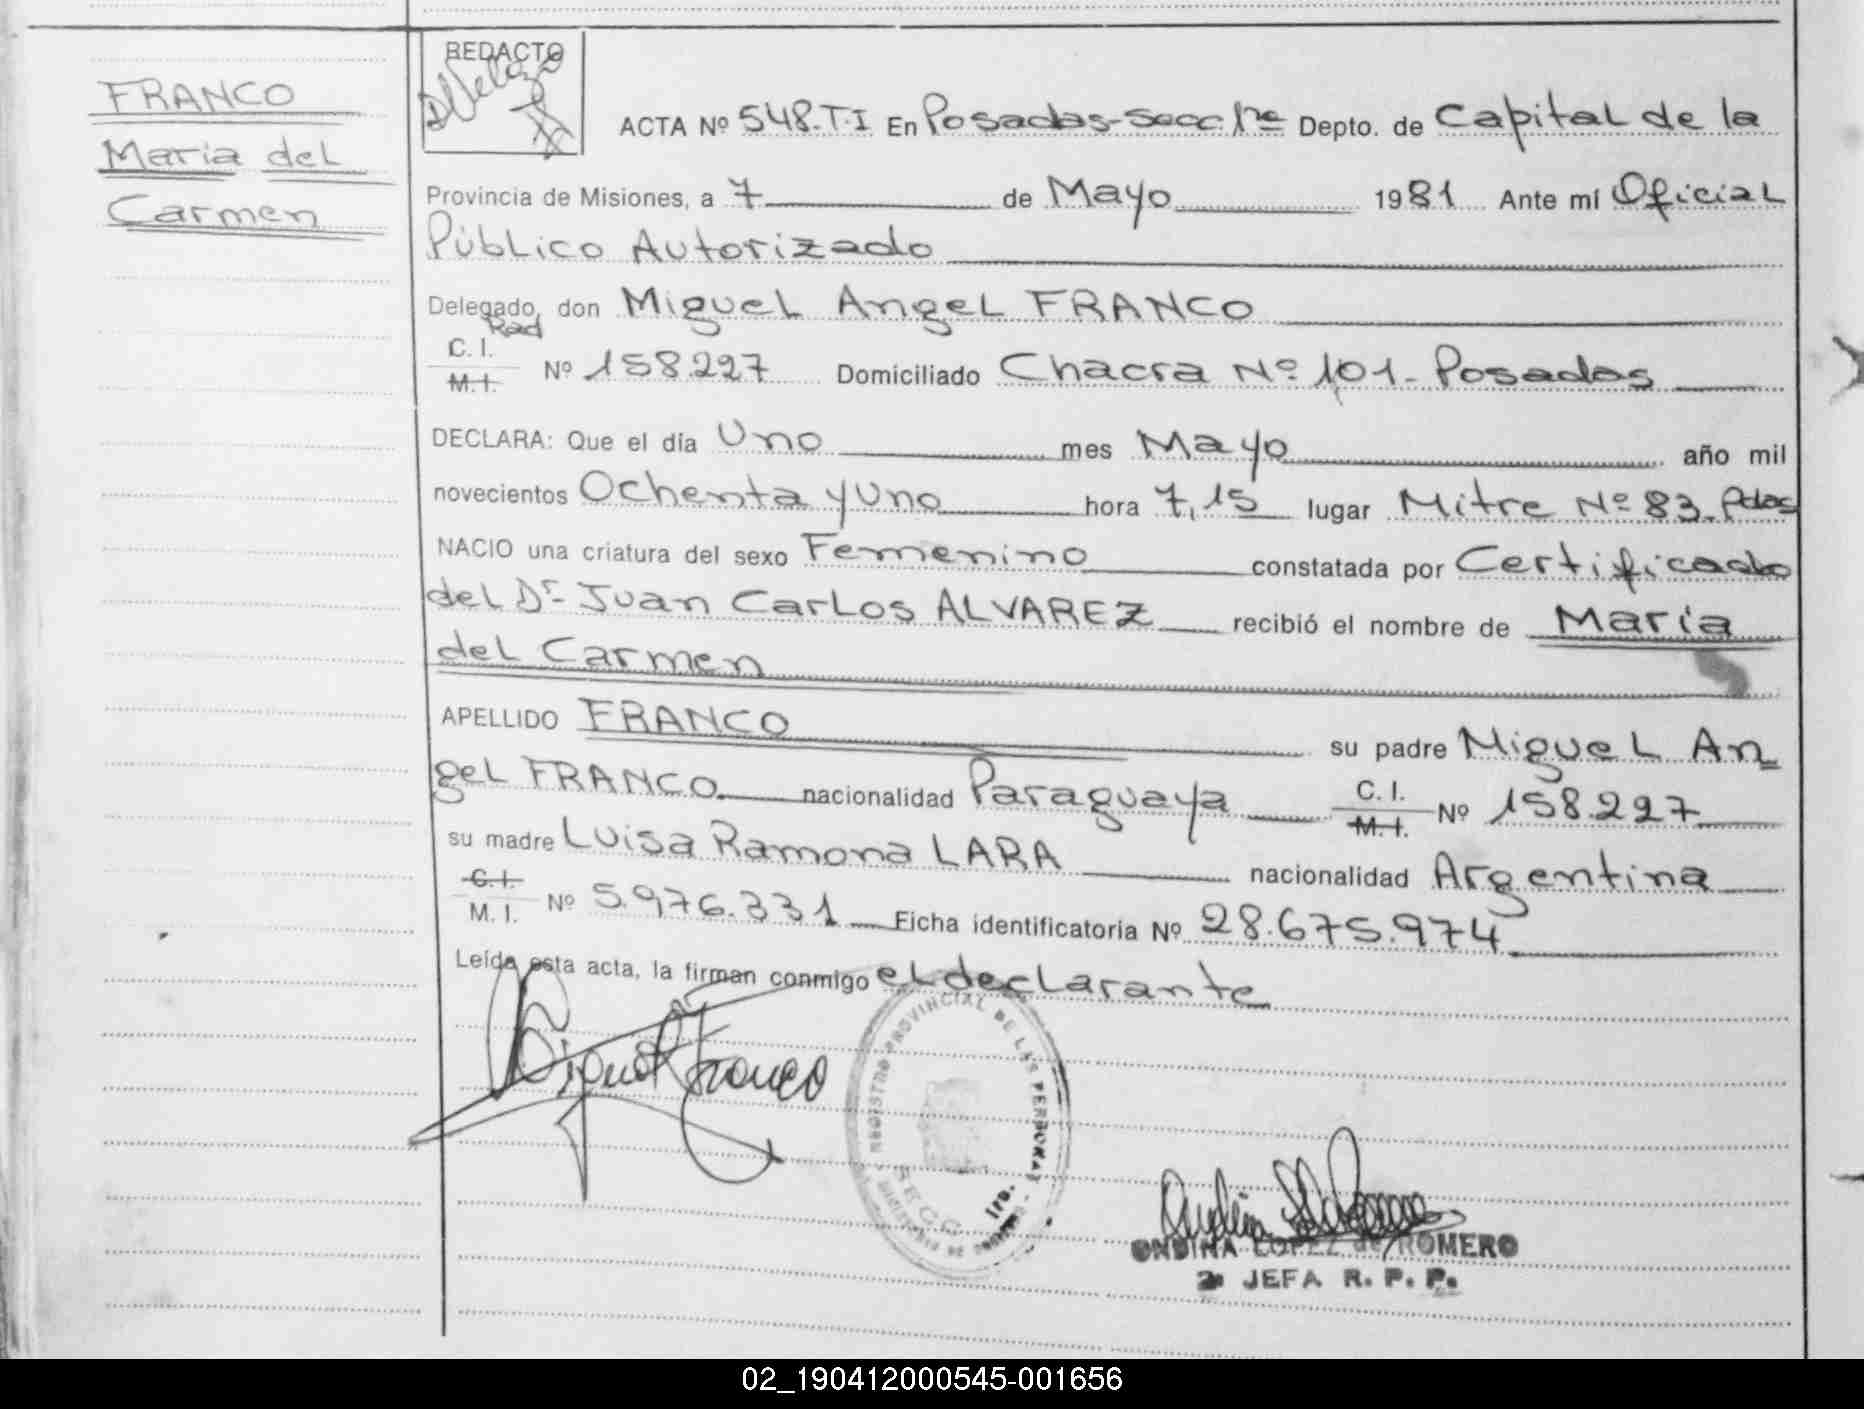 FRANCO
Maria del
Carmen
REDACTO
ACTA Nº 548.T.I En Posadas-Secc 1ra Depto. de Capital de la
Provincia de Misiones, a 7 de Mayo 1981 Ante mí Oficial
Público Autorizado
Delegado, don Miguel Angel FRANCO
Rad
C. I.
M. I. Nº 158.227 Domiciliado Chacra Nº 101- Posadas
DECLARA: Que el día Uno mes Mayo año mil
novecientos Ochenta y Uno hora 7,15 lugar Mitre Nº 83. Pdas
NACIO una criatura del sexo Femenino constatada por Certificado
del Dr. Juan Carlos ALVAREZ recibió el nombre de Maria
del Carmen
APELLIDO FRANCO su padre Miguel An
gel FRANCO nacionalidad Paraguaya C. I. M. I. Nº 158.227
su madre Luisa Ramona LARA nacionalidad Argentina
C. I. M. I. Nº 5.976.331 Ficha identificatoria Nº 28.675.974
Leída esta acta, la firman conmigo el declarante
REGISTRO PROVINCIAL DE LAS PERSONAS
ONDINA LOPEZ de ROMERO
2ª JEFA R. P. P.
02_190412000545-001656